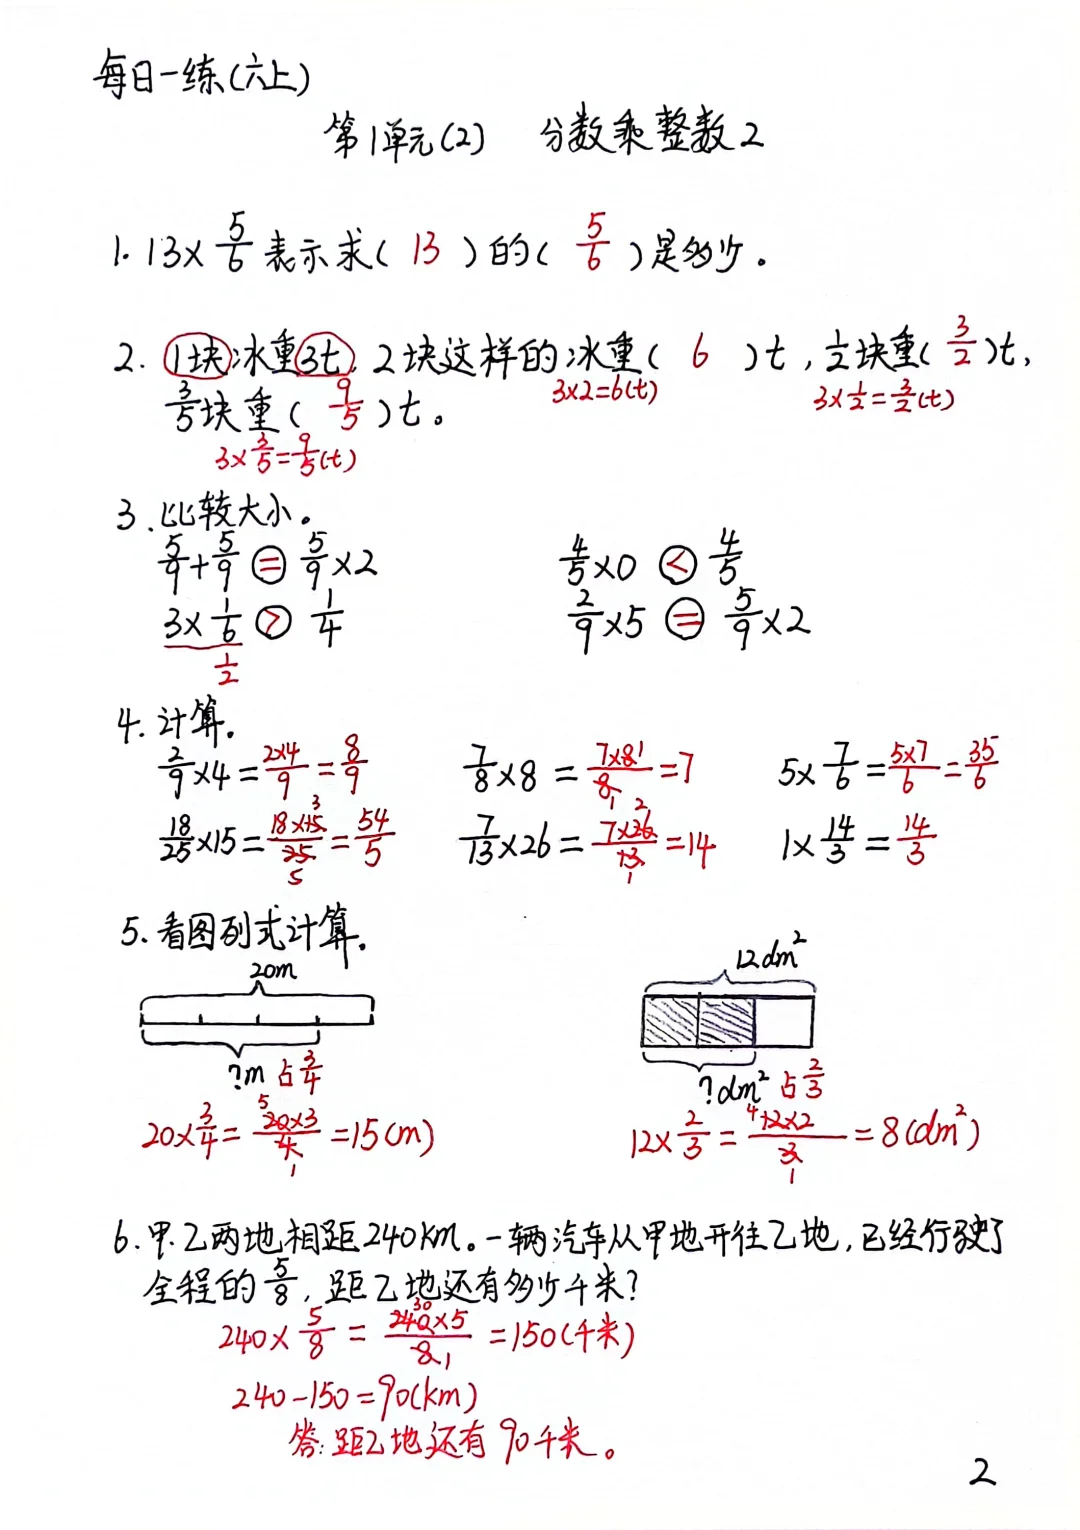 每日一练(六上)
第1单元(2) 分数乘整数2
1. 13×5/6表示求( 13 )的( 5/6 )是多少。
2. 1块冰重3t, 2块这样的冰重( 6 )t, 1/2块重( 3/2 )t,
3×2=6(t) 3×1/2=3/2(t)
3/5块重( 9/5 )t。
3×3/5=9/5(t)
3. 比较大小。
5/9+5/9 = 5/9×2 4/5×0 < 4/5
3×1/6 > 1/4 2/9×5 = 5/9×2
1/2
4. 计算。
2/9×4=2×4/9=8/9 7/8×8=7×8/8=7 5×7/6=5×7/6=35/6
18/25×15=18×15/25=54/5 7/13×26=7×26/13=14 1×14/3=14/3
5. 看图列式计算。
20m 12dm²
?m 占3/4 ?dm² 占2/3
20×3/4=20×3/4=15(m) 12×2/3=12×2/3=8(dm²)
6. 甲.乙两地相距240km。一辆汽车从甲地开往乙地,已经行驶了
全程的5/8, 距乙地还有多少千米?
240×5/8=240×5/8=150(千米)
240-150=90(km)
答:距乙地还有90千米。
2